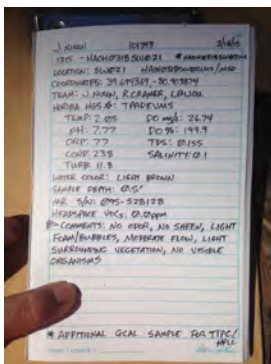 J. NIXON 101393 2/18/15
1315 - HACH0315SW021
LOCATION: SW021
COORDINATES: 39.649369, -80.903874
TEAM: J. NIXON, R. CRAMER,
HORIBA
TEMP: 2.05 DO mg/L: 26.74
pH: 7.77 DO %: 199.9
ORP: 77 TDS: 0.155
COND: 238 SALINITY: 0.1
TURB: 11.8
WATER COLOR: LIGHT BROWN
SAMPLE DEPTH: 0.5'
S/N: 095-528128
HEADSPACE VOCs: 0.0ppm
COMMENTS: NO ODOR, NO SHEEN, LIGHT
FOAM/BUBBLES, MODERATE FLOW, LIGHT
SURROUNDING VEGETATION, NO VISIBLE
ORGANISMS
* ADDITIONAL GCAL SAMPLE FOR TTPC/